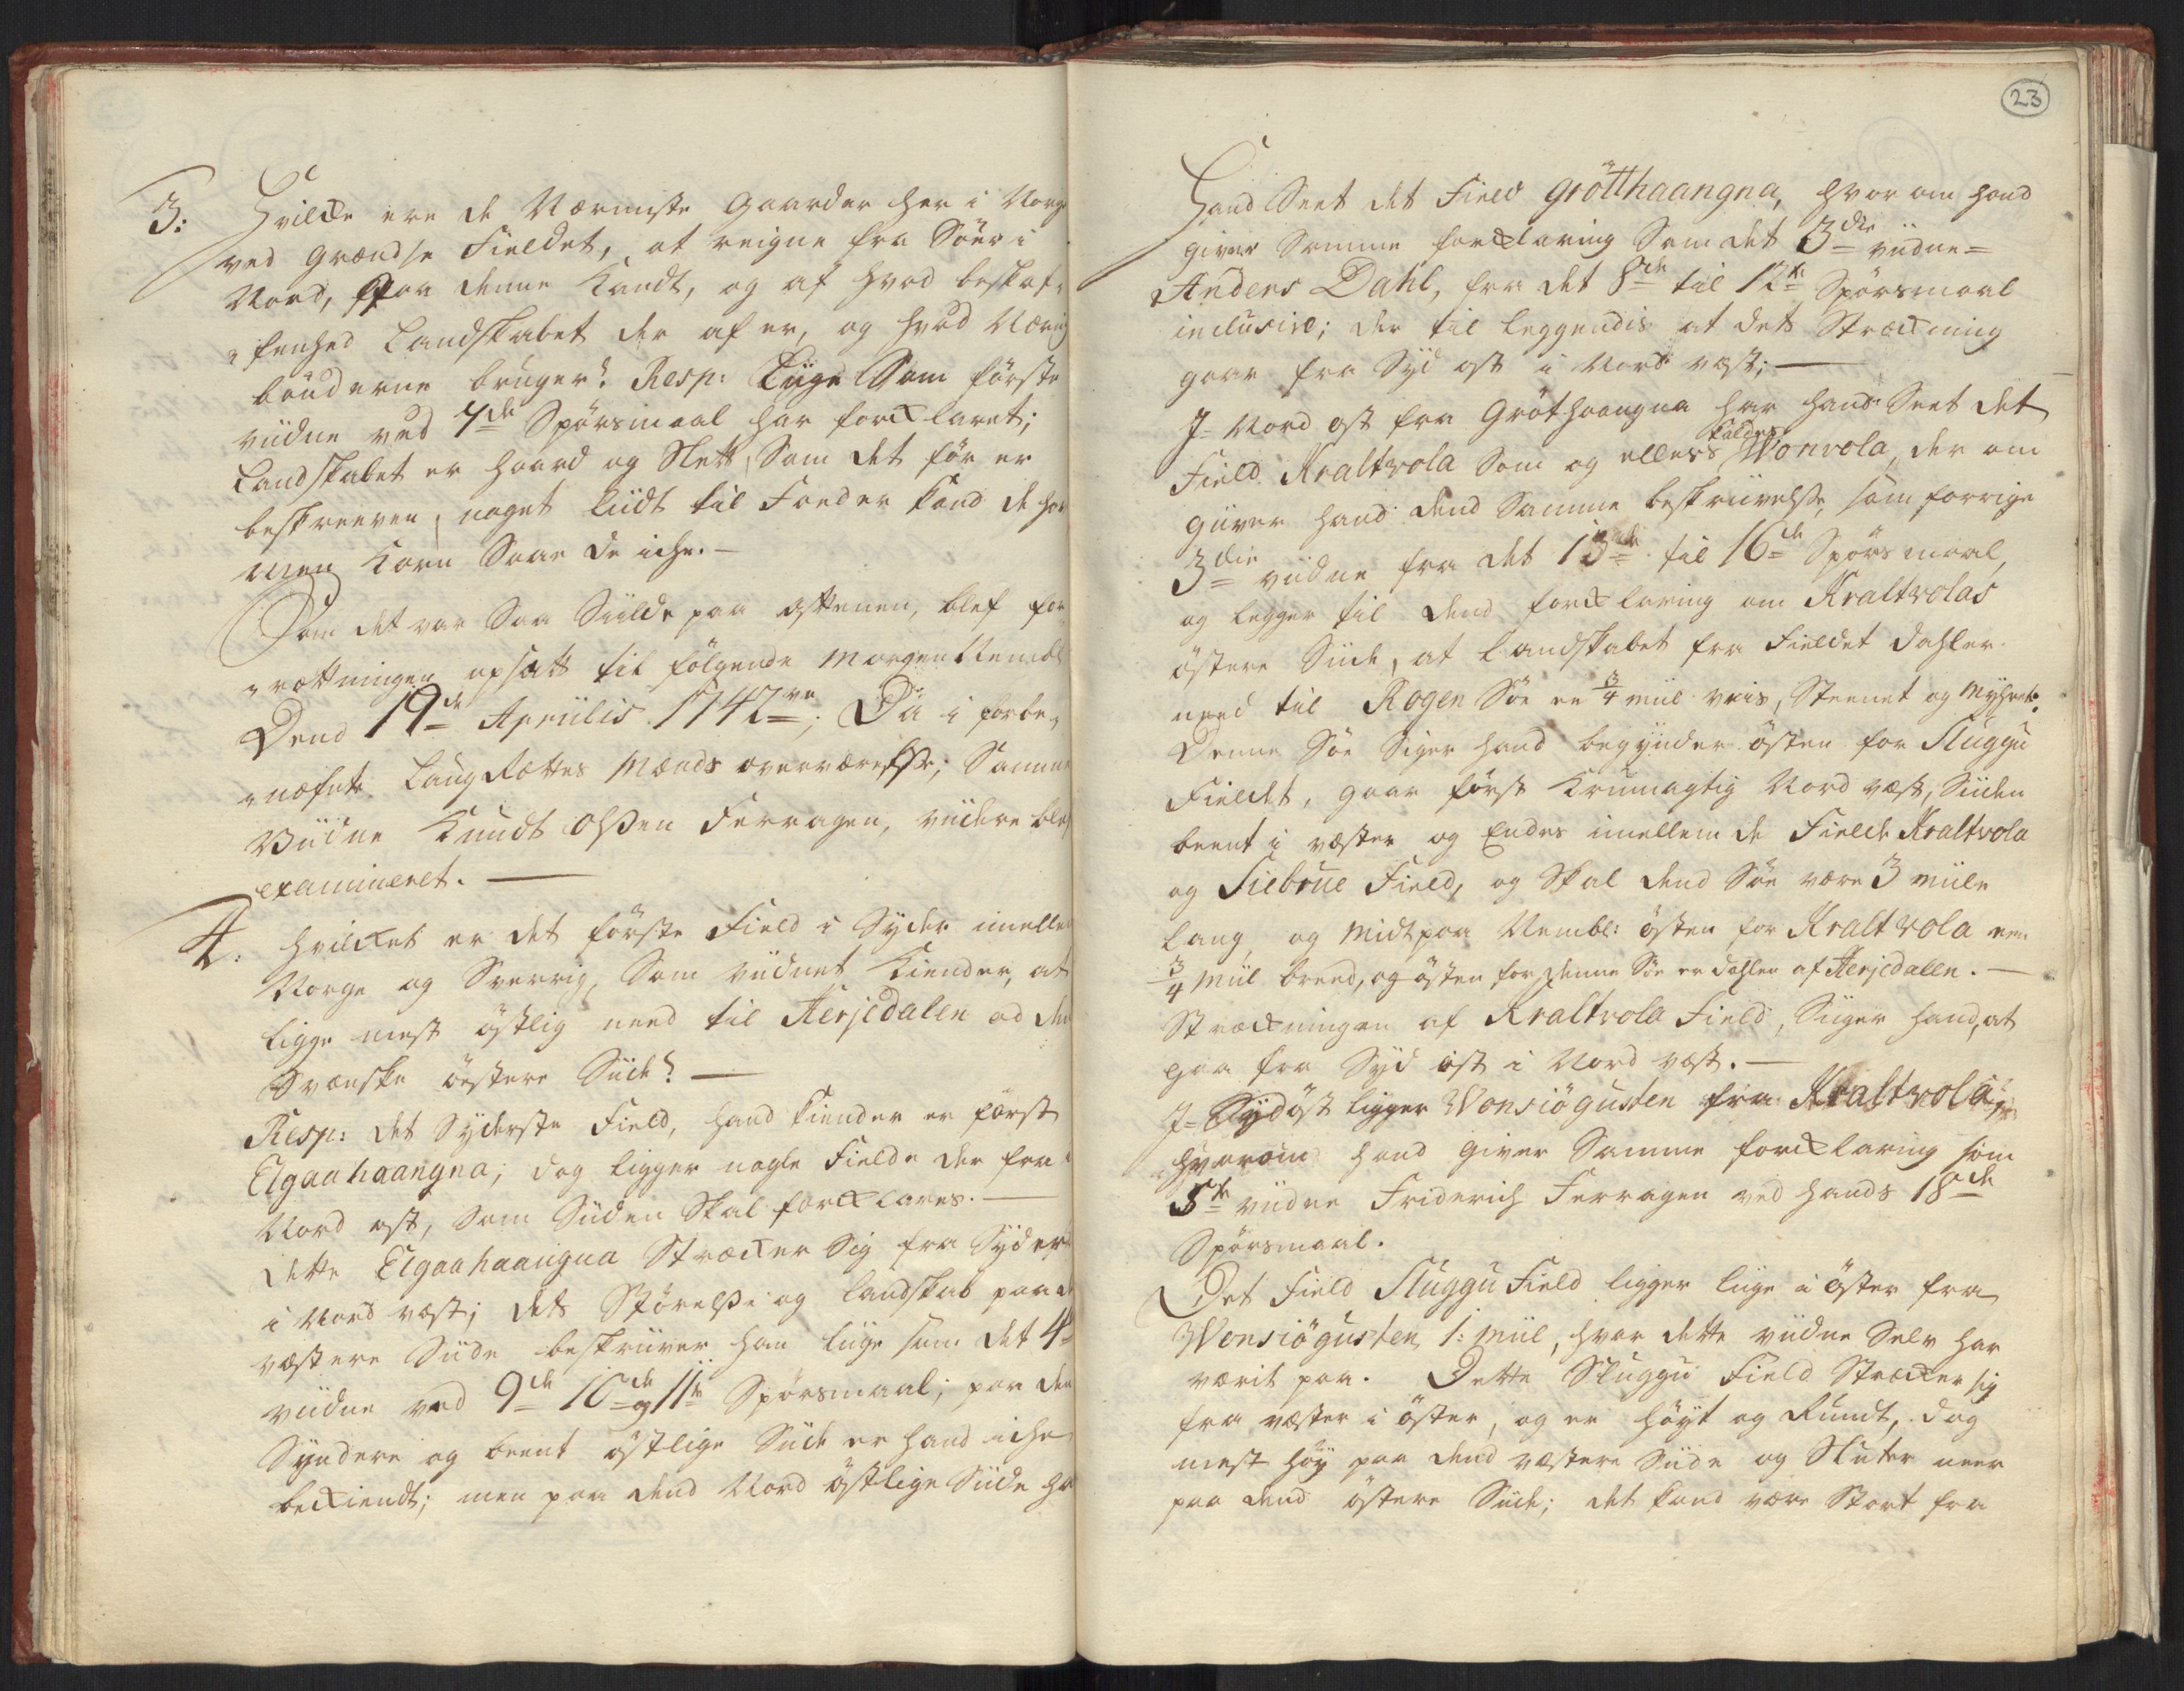 3: Hvilke ere de Nærmeste Gaarder her i Norge
ved Grændse Fieldet, at reigne fra Söer i
Nord, paa denne Kandt, og af hvad beskaf-
"fenhed Landskabet der af er, og hvad Næring
bönderne bruger? Resp: Liige Som förste
viidne ved 7de Spörsmaal har forklaret;
Landskabet er haard og Slett, Som det för er
beskreeven, noget liidt til Foeder kand de ha
men Korn Saar de iche. —
Som det var Saa Siilde paa Aftenen, blef for
"rættningen opsatt til fölgende Morgen Nembl
Dend 19de Apriilis 1742ve; Da i forbe-
"næfnte Laug Rættes Mænds overværelsse; Samme
Viidne Knudt Olßen Ferragen, viidere blef
examineret. —
4: Hvilket er det förste Field i Syder imellem
Norge og Sverrig, Som viidnet Kiender, at
ligge mest östlig need til Herjedalen ad den
Svenske östere Siide? —
Resp: det Syderste Field, hand kiender er först
Elgaahaangna; dog ligger nogle Fielde der fra
Nord ost, som Siiden Skal forklares. —
Dette Elgaahaangna Strækker Sig fra Syder
i Nord væst; dets Störelße og landskab paa d
væstere Siide beskriiver han liige som det 4
viidne ved 9de 10de og 11te Spörsmaal; paa den
Syndere og beent östlige Siide er hand iche
bekiendt; men paa dend Nord östlige Siide ha
23
Hand Seet det Field Grötthaangna, hvor om hand
giver Samme forklaring Som det 3die viidne
Anders Dahl, fra det 8de til 12te Spörsmaal
inclusive; der til leggendis at dets Strækning
gaar fra Syd ost i Nord væst; —
I Nord ost fra Gröthaangna har hand Seet det
Field Kraltvola Som og ellers kaldes Wonvola, der om
giiver hand dend Samme beskriivelße, som forrige
3die viidne fra det 13de til 16de Spörsmaal,
og legger til dend forklaring om Kraltvolas
östere Siide, at Landskabet fra Fieldet dahler
need til Rogen Söe en 3/4 miil veis, Steenet og Myhret.
Denne Söe Siger hand begynder östen for Sluggu
Fieldet, gaar först Krumagtig Nord væst, Siiden
beent i væster og Endes imellem de Fielde Kraltvola
og Siebrue Field, og Skal dend Söe være 3 miile
lang, og midt paa Nembl: östen for Kraltvola een
3/4 Miil breed, og östen for denne Söe er dahlen af Herjedalen. —
Strækningen af Kraltvola Field, Siiger hand, at
gaa fra Syd ost i Nord væst. —
I Sydöst ligger Wonsiögusten fra Kraltvola,
hvorom hand giver Samme forklaring som
5te viidne Friderich Ferragen ved hands 18de
Spörsmaal.
Det Field Sluggu Field ligger liige i Öster fra
Wonsiögusten 1: Miil, hvor dette viidne Selv har
værit paa. Dette Sluggu Field Strækker sig
fra væster i öster, og er höyt og Rundt, dog
mest höy paa dend væstere Siide og Sluter neer
paa dend östere Siide; det kand være Stort fra